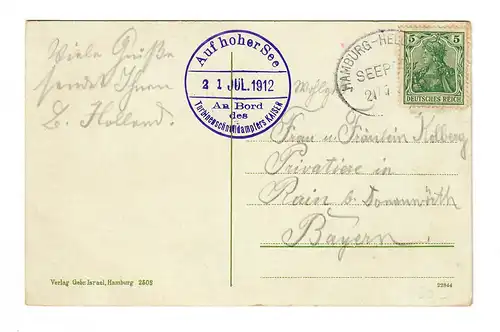 Viele Grüße
sendet Ihnen
B. Holland.
Auf hoher See
21 JUL. 1912
An Bord
des
Turbinenschnelldampfers KAISER
HAMBURG-HEL
SEEP
5 5
DEUTSCHES REICH
Frau u Fräulein Kolberg
Privatiere in
Rain b. Donauwörth
Bayern
Verlag Gebr. Israel, Hamburg 2505
22844